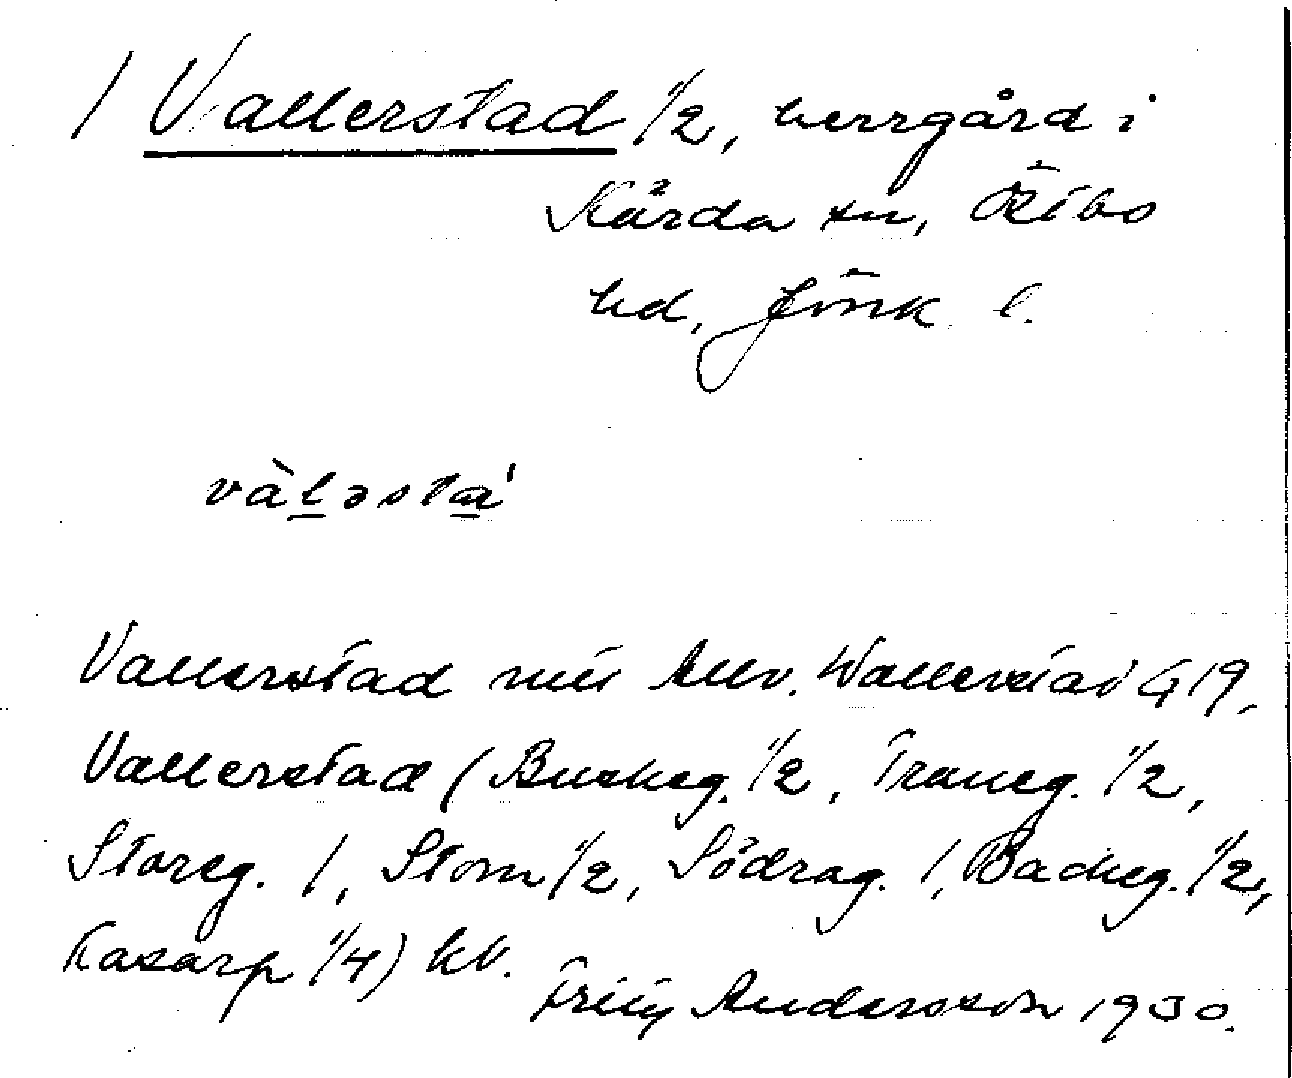 / Vallerstad 1/2, herrgård i
Kärda sn, Östbo
hd, Jönk. l.
vàl̲əsta̲'
Vallerstad Wallerstad G 19,
Vallerstad (Buskeg. 1/2, Traneg. 1/2,
Storeg. 1, Stom 1/2, Södrag. 1, Backeg. 1/2,
Kasarp 1/4) kb.
Andersson 1930.